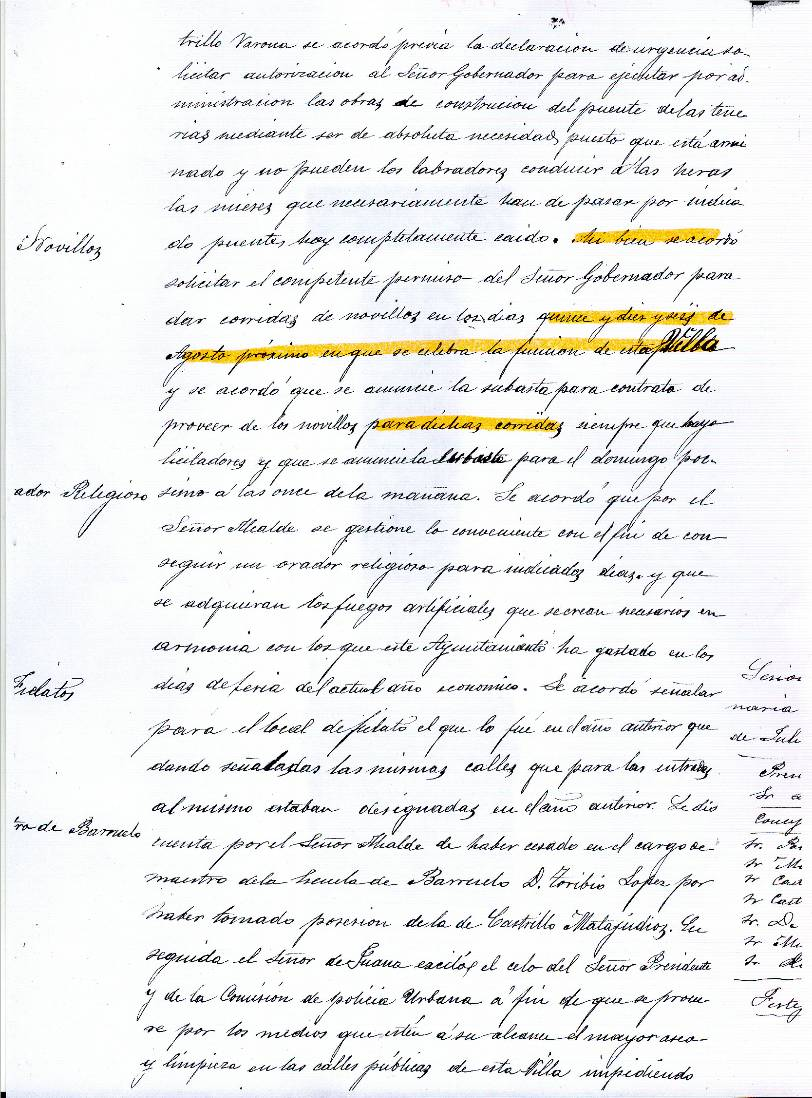 trillo Varona se acordó previa la declaracion de urgencia so-
licitar autorizacion al Señor Gobernador para ejecutar por ad-
ministracion las obras de construcion del puente de las tene
rias mediante ser de absoluta necesidad puesto que está arrui
nado y no pueden los labradores conducir á las heras
las mieses que necesariamente han de pasar por indica
Novillos
do puentes hoy completamente caido. Mi bien se acordó
solicitar el competente permiso del Señor Gobernador para
dar corridas de novillos en los dias quince y diez y seis de
Agosto próximo en que se celebra la funcion de esta Villa
y se acordó que se anuncie la subasta para contrata de
proveer de los novillos para dichas corridas siempre que haya
licitadores y que se anuncie la subasta para el domingo pró-
ador Religioso
simo á las once de la mañana. Se acordó que por el
Señor Alcalde se gestione lo conveniente con el fin de con
seguir un orador religioso para indicados dias. y que
se adquieran los fuegos artificiales que se crean necesarios en
armonia con los que este Ayuntamiento ha gastado en los
Fielatos
dias de feria del actual año economico. Se acordó señalar
para el local de fielato el que lo fué en el año anterior que
dando señaladas las mismas calles que para las entradas
al mismo estaban designadas en el año anterior. Se dio
tro de Barruelo
cuenta por el Señor Alcalde de haber cesado en el cargo de
maestro de la Escuela de Barruelo D. Toribio Lopez por
haber tomado posesion de la de Castrillo Matajudios. En
seguida el Señor de Juana escitó el celo del Señor Presidente
y de la Comisión de policia Urbana á fin de que se procu-
re por los medios que estén á su alcance el mayor aseo
y limpieza en las calles públicas de esta Villa impidiendo
Señor
naria
de Juli
Pren
Sr a
Concej
Sr.
Sr
Sr
Sr Cast
Sr. De
Sr
Sr
Feste